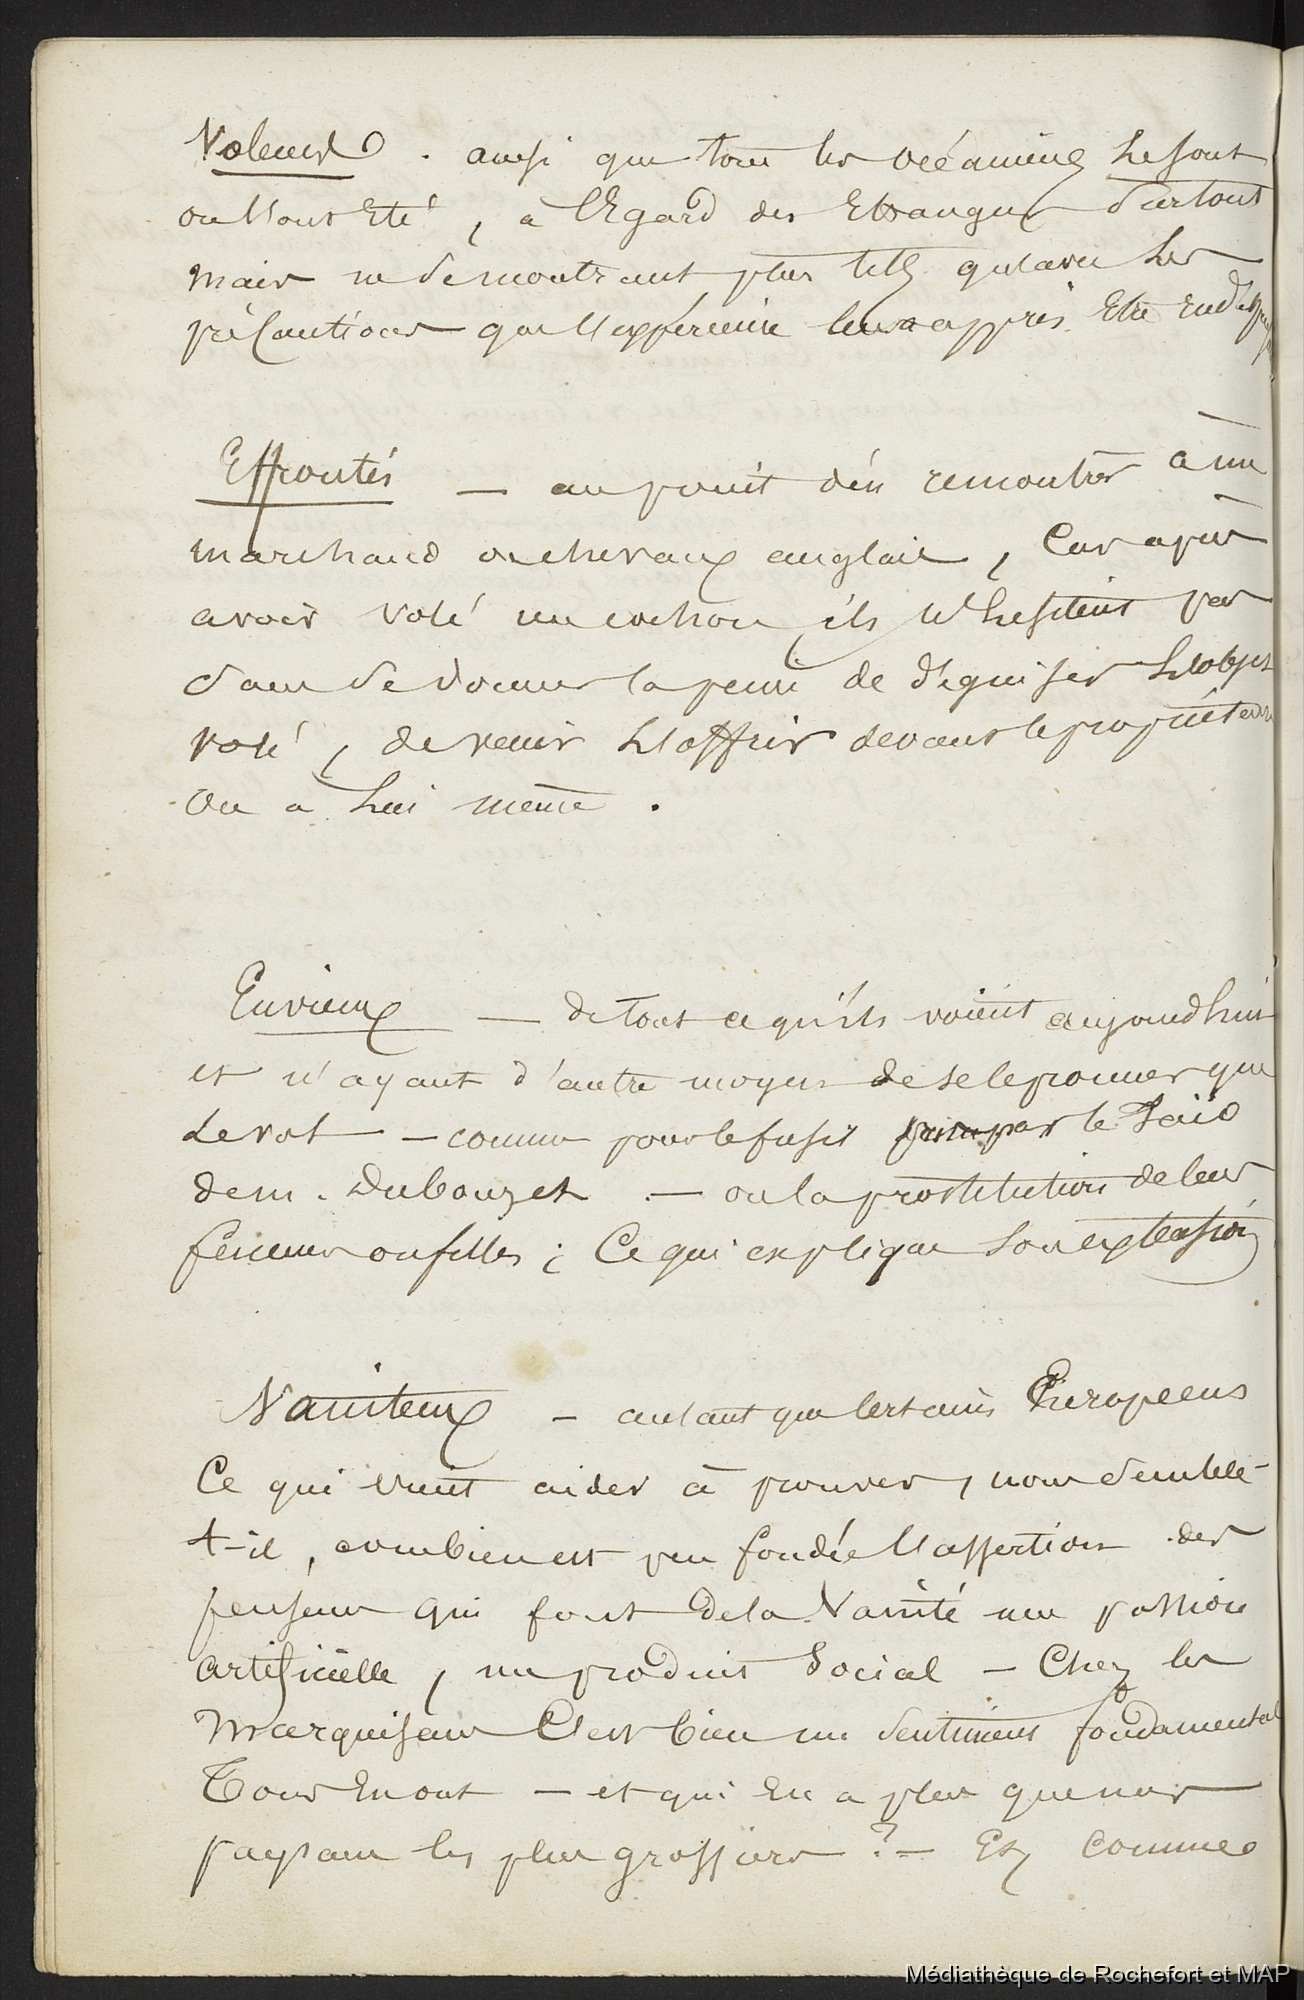 Voleurs . ainsi que tous les océaniens le sont
ou l'ont été , à l'Egard des Etrangers surtout
mais ne se montrant plus tels qu'avec les
précautions que l'expérience leur a appris Etre
Effrontés — au point d'en remontrer à un
marchand de chevaux anglais , Car après
avoir volé un cochon ils n'hesitent pas
sans se donner la peine de déguiser l'objet
volé , de venir l'offrir devant le propriétaire
ou à lui même .
Envieux — de tout ce qu'ils voient aujourdhui
et n'ayant d'autre moyen de se le procurer que
le vol — comme pour le fusil par le Taïo
de m. Dubouzet . — ou la prostitution de leurs
femmes ou filles ; Ce qui explique son extension
Vaniteux — autant que certains Européens
Ce qui vient aider à prouver , nous semble-
t-il , combien est peu fondée l'assertion des
penseurs qui font de la Vanité une passion
artificielle , un produit Social — Chez les
Marquisans C'est bien un sentiment fondamental
Tous en ont — et qui En a plus que nos
paysans les plus grossiers ? — Et comme
Médiathèque de Rochefort et MAP